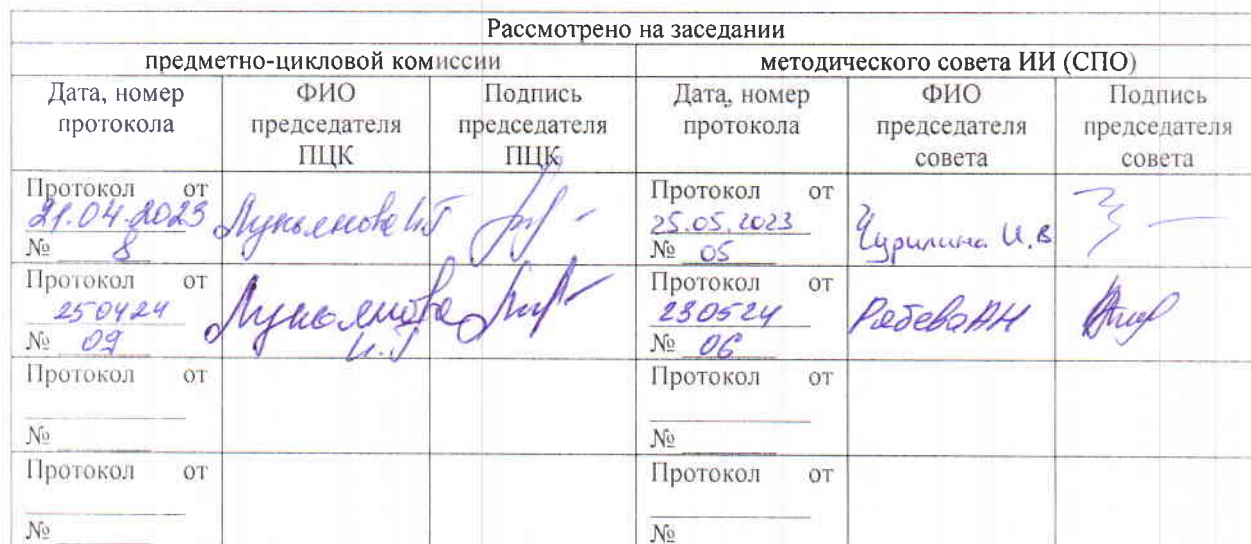 Рассмотрено на заседании
предметно-цикловой комиссии
методического совета ИИ (СПО)
Дата, номер
протокола
ФИО
председателя
ПЦК
Подпись
председателя
ПЦК
Дата, номер
протокола
ФИО
председателя
совета
Подпись
председателя
совета
Протокол от
21.04.2023
№ 8
Лукьянова И.Г
Протокол от
25.05.2023
№ 05
Чурилина И.В
Протокол от
250424
№ 09
Лукьянова
И.Г
Протокол от
230524
№ 06
РябеваАН
Протокол от
№
Протокол от
№
Протокол от
№
Протокол от
№